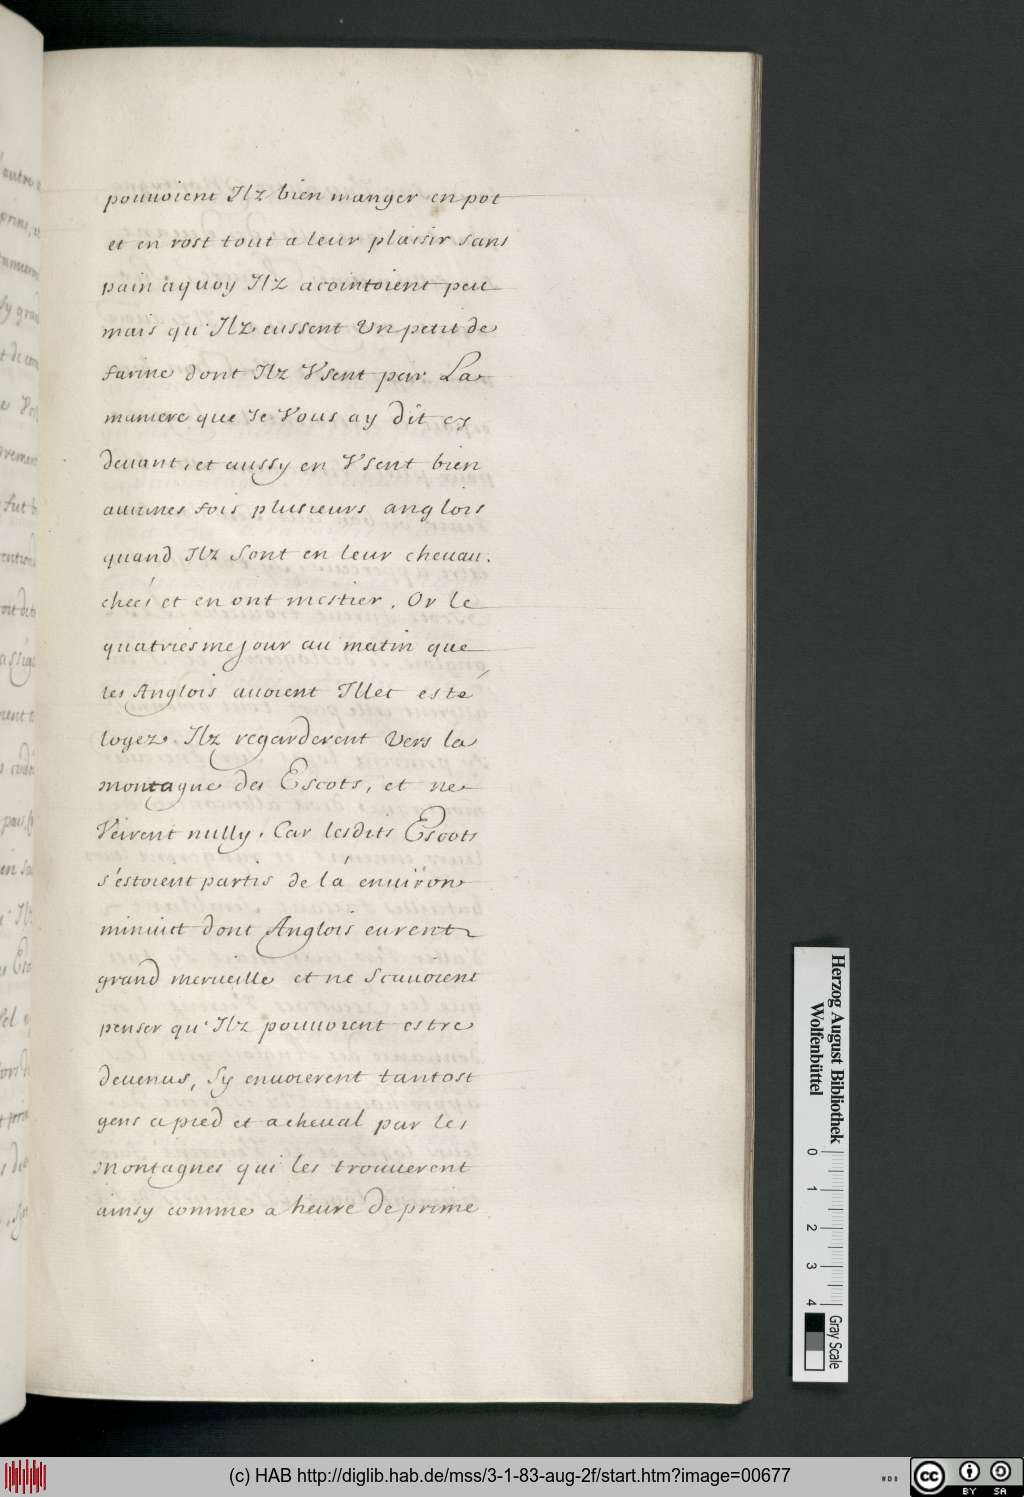 pouuoient Ilz bien manger en pot
et en rost tout a leur plaisir sans
pain a quoy Ilz acointoient peu
mais qu'Ilz eussent Un petit de
farine dont Ilz Usent par La
maniere que Ie Vous ay dit cy
deuant, et aussy en Usent bien
aucunes fois plusieurs anglois
quand Ilz sont en leur cheuau.
cheés et en ont mestier. Or le
quatriesme jour au matin que
les Anglois auoient Illec esté
logez. Ilz regarderent Vers la
montagne des Escots, et ne
Veirent nully. Car lesdits Escots
s'estoient partis de là enuiron
minuict dont Anglois eurent
grand merueille et ne scauoient
penser qu'Ilz pouuoient estre
deuenus, sy enuoierent tantost
gens a pied et a cheual par les
montagnes qui les trouuerent
ainsy comme a heure de prime
Herzog August Bibliothek
Wolfenbüttel
0 1 2 3 4
Gray Scale
(c) HAB http://diglib.hab.de/mss/3-1-83-aug-2f/start.htm?image=00677
WDB
cc BY SA